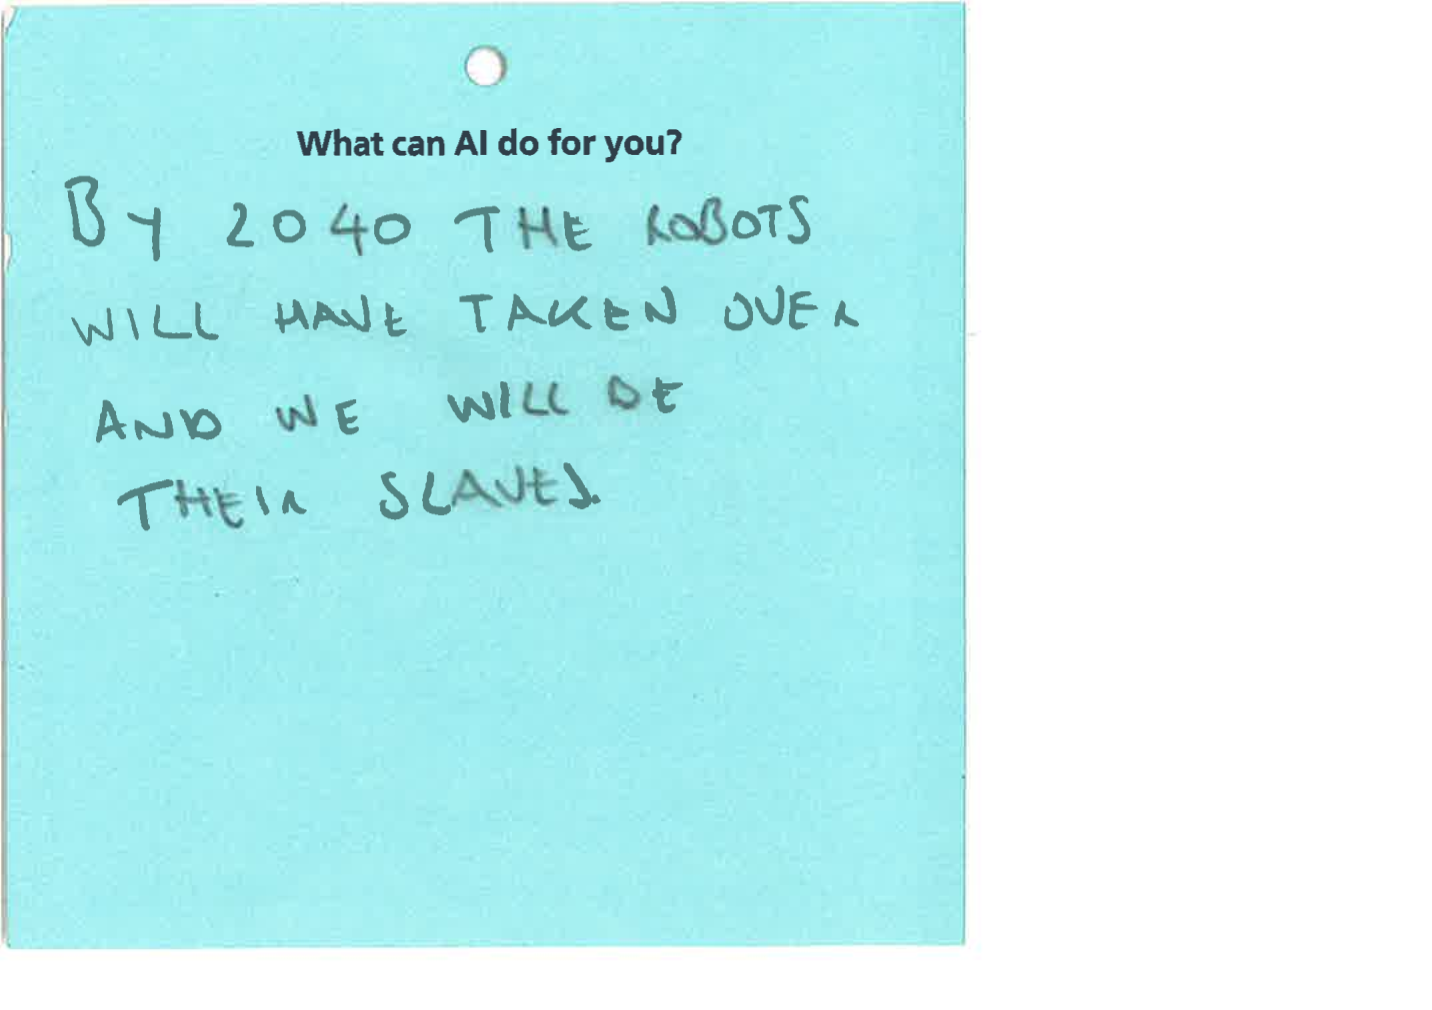 What can AI do for you?
BY 2040 THE ROBOTS
WILL HAVE TAKEN OVER
AND WE WILL BE
THEIR SLAVES.